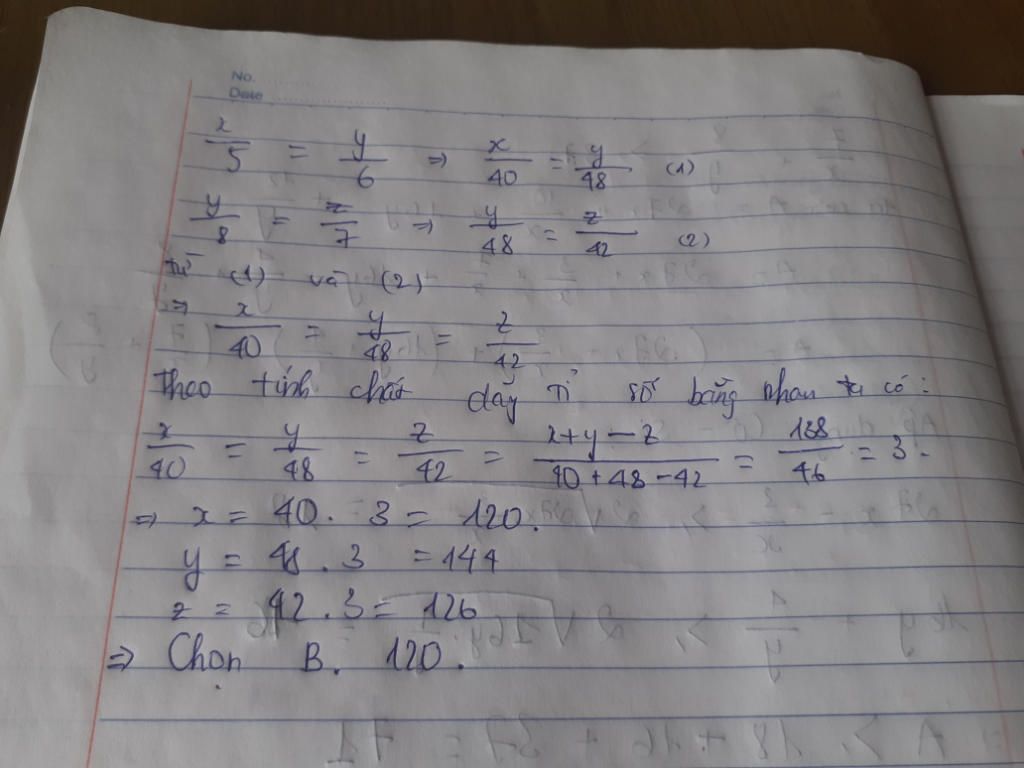 No.
Date
x/5 = y/6 ⇒ x/40 = y/48 (1)
y/8 = z/7 ⇒ y/48 = z/42 (2)
từ (1) và (2)
⇒ x/40 = y/48 = z/42
Theo tính chất dãy tỉ số bằng nhau ta có:
x/40 = y/48 = z/42 = (x+y-z)/(40+48-42) = 138/46 = 3.
⇒ x = 40. 3 = 120.
y = 48 . 3 = 144
z = 42 . 3 = 126
⇒ Chọn B. 120.